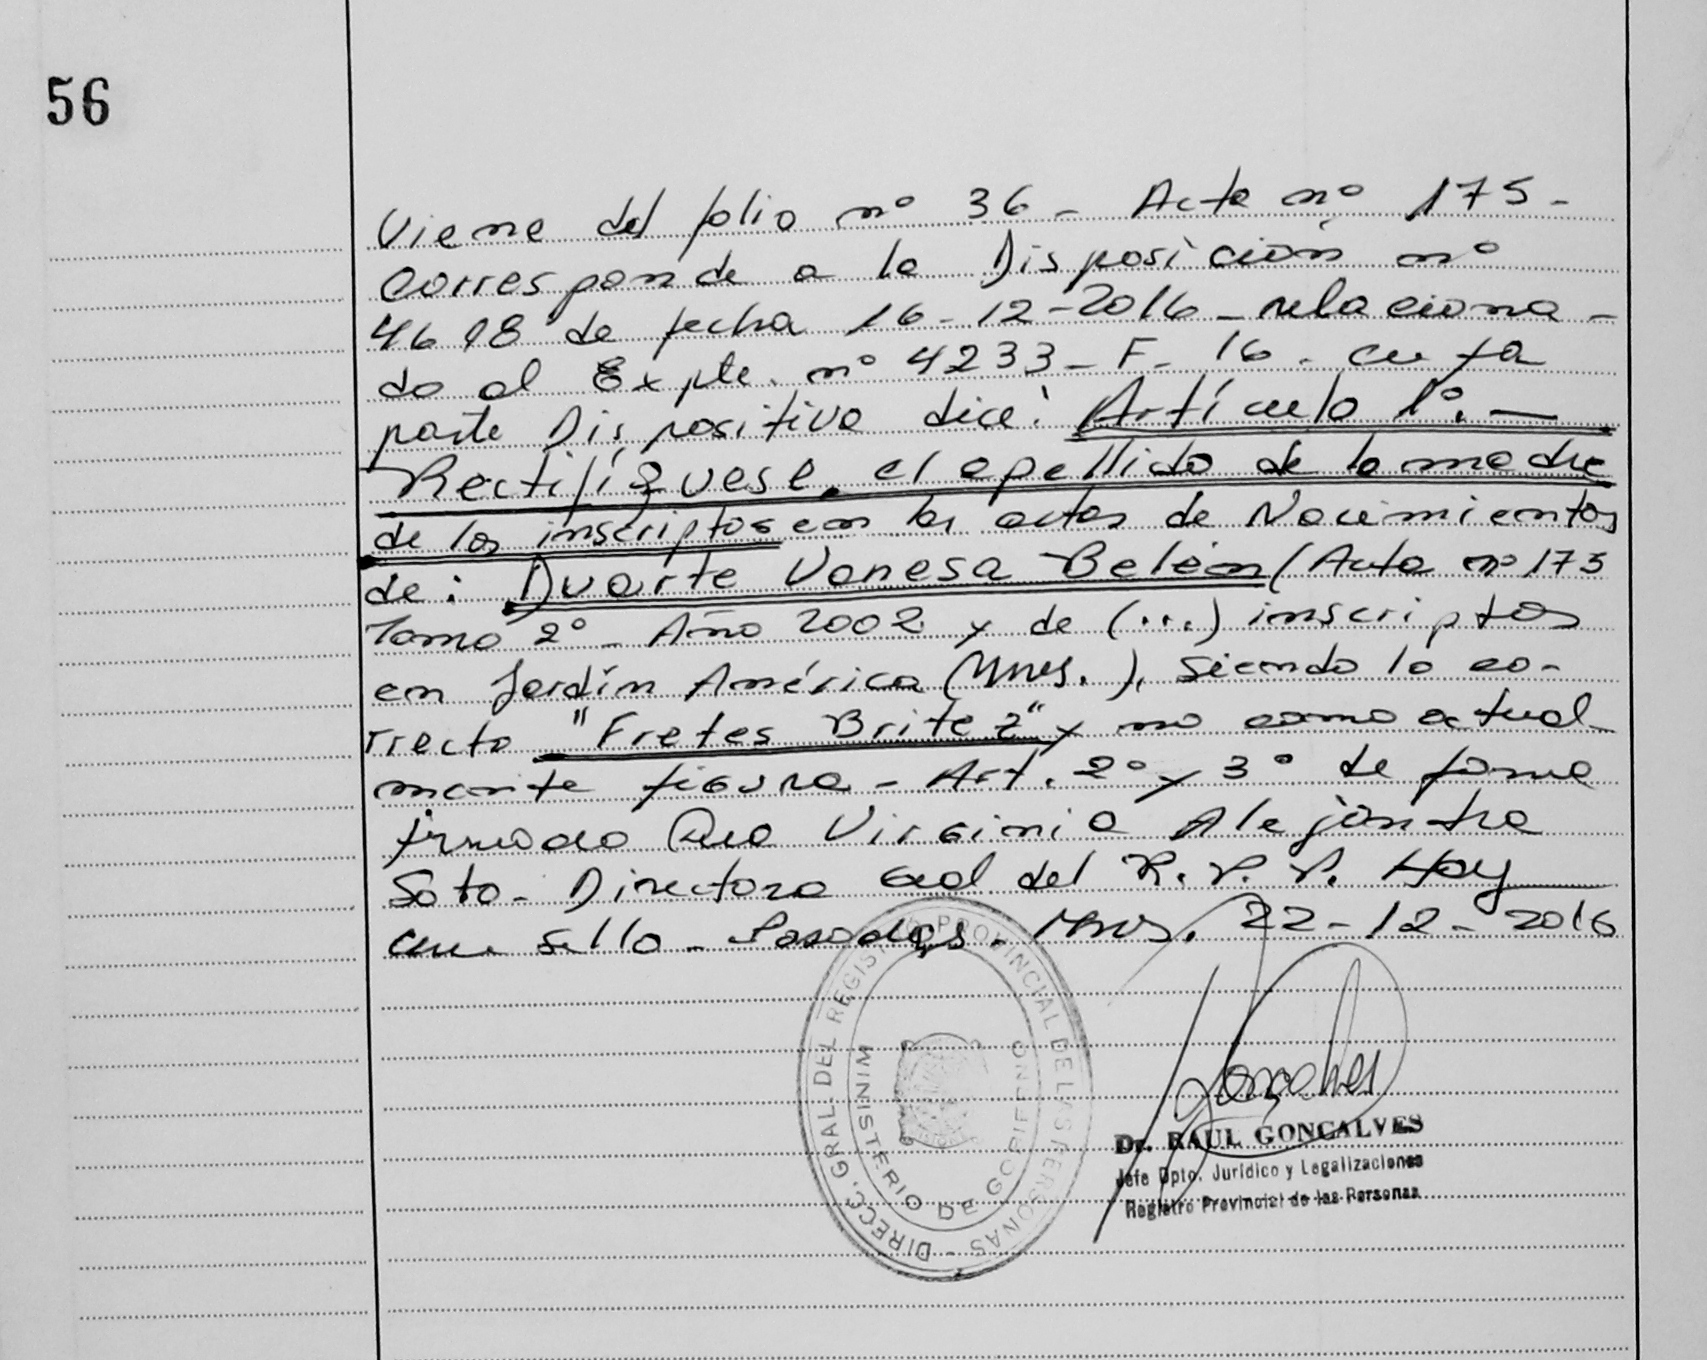 56
Viene del folio nº 36 - Acta nº 175 -
corresponde a la Disposición nº
4698 de fecha 16-12-2016 - relaciona -
do al Expte. nº 4233 - F - 16 - cuya
parte Dispositiva dice: Artículo 1º. —
Rectifíquese. el apellido de la madre
de los inscriptos en las actas de Nacimientos
de: Duarte Vanesa Belén (Acta nº 175
Tomo 2º - Año 2002 y de (...) inscriptos
en Jardín América (Mnes.), siendo lo co-
rrecto "Fretes Britez" y no como actual-
mente figura - Art. 2º y 3º de forma
firmado Virginia Alejandra
Soto - Directora Gral del R. P. P. Hay
un sello - Posadas - Mnes. 22-12-2016
DIRECC. GRAL. DEL REGISTRO PROVINCIAL DE LAS PERSONAS -
MINISTERIO DE GOBIERNO
Gonçalves
Dr. RAUL GONÇALVES
Jefe Dpto. Jurídico y Legalizaciones
Registro Provincial de las Personas